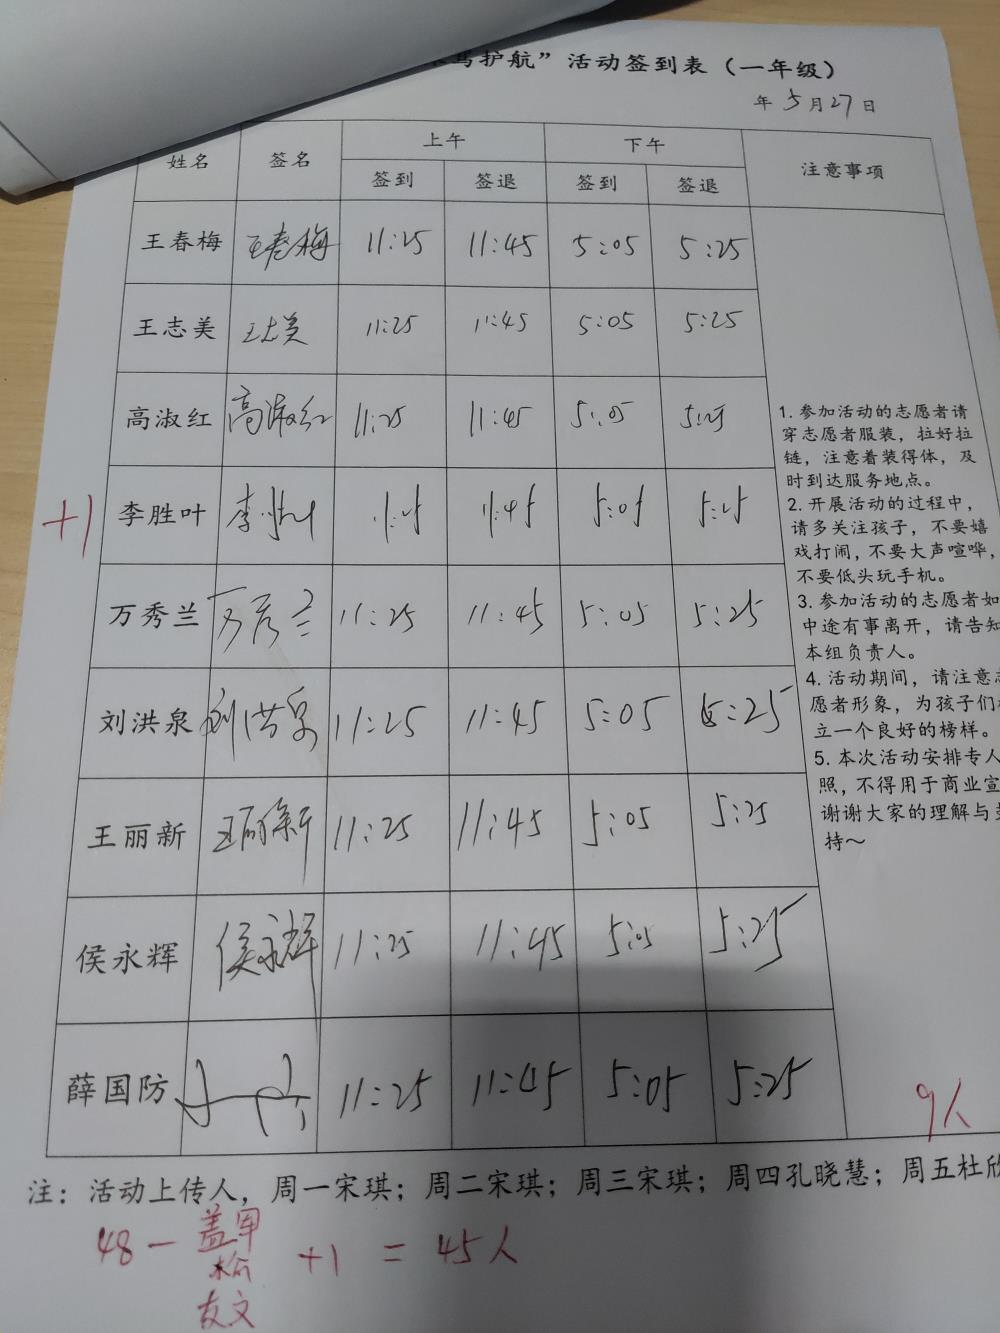 驾护航”活动签到表（一年级）
年 5月27日
姓名 签名 上午 下午 注意事项
签到 签退 签到 签退
王春梅 王春梅 11:25 11:45 5:05 5:25
王志美 王志美 11:25 11:45 5:05 5:25
高淑红 高淑红 11:25 11:45 5:05 5:25
+1 李胜叶 11:25 11:45 5:05 5:25
万秀兰 万秀兰 11:25 11:45 5:05 5:25
刘洪泉 刘洪泉 11:25 11:45 5:05 5:25
王丽新 王丽新 11:25 11:45 5:05 5:25
侯永辉 侯永辉 11:25 11:45 5:05 5:25
薛国防 11:25 11:45 5:05 5:25
1. 参加活动的志愿者请
穿志愿者服装，拉好拉
链，注意着装得体，及
时到达服务地点。
2. 开展活动的过程中，
请多关注孩子，不要嬉
戏打闹，不要大声喧哗，
不要低头玩手机。
3. 参加活动的志愿者如
中途有事离开，请告知
本组负责人。
4. 活动期间，请注意志
愿者形象，为孩子们
立一个良好的榜样。
5. 本次活动安排专人
照，不得用于商业宣
谢谢大家的理解与支
持～
9人
注：活动上传人，周一宋琪；周二宋琪；周三宋琪；周四孔晓慧；周五杜欣
48 - 盖军 +1 = 45人
友文